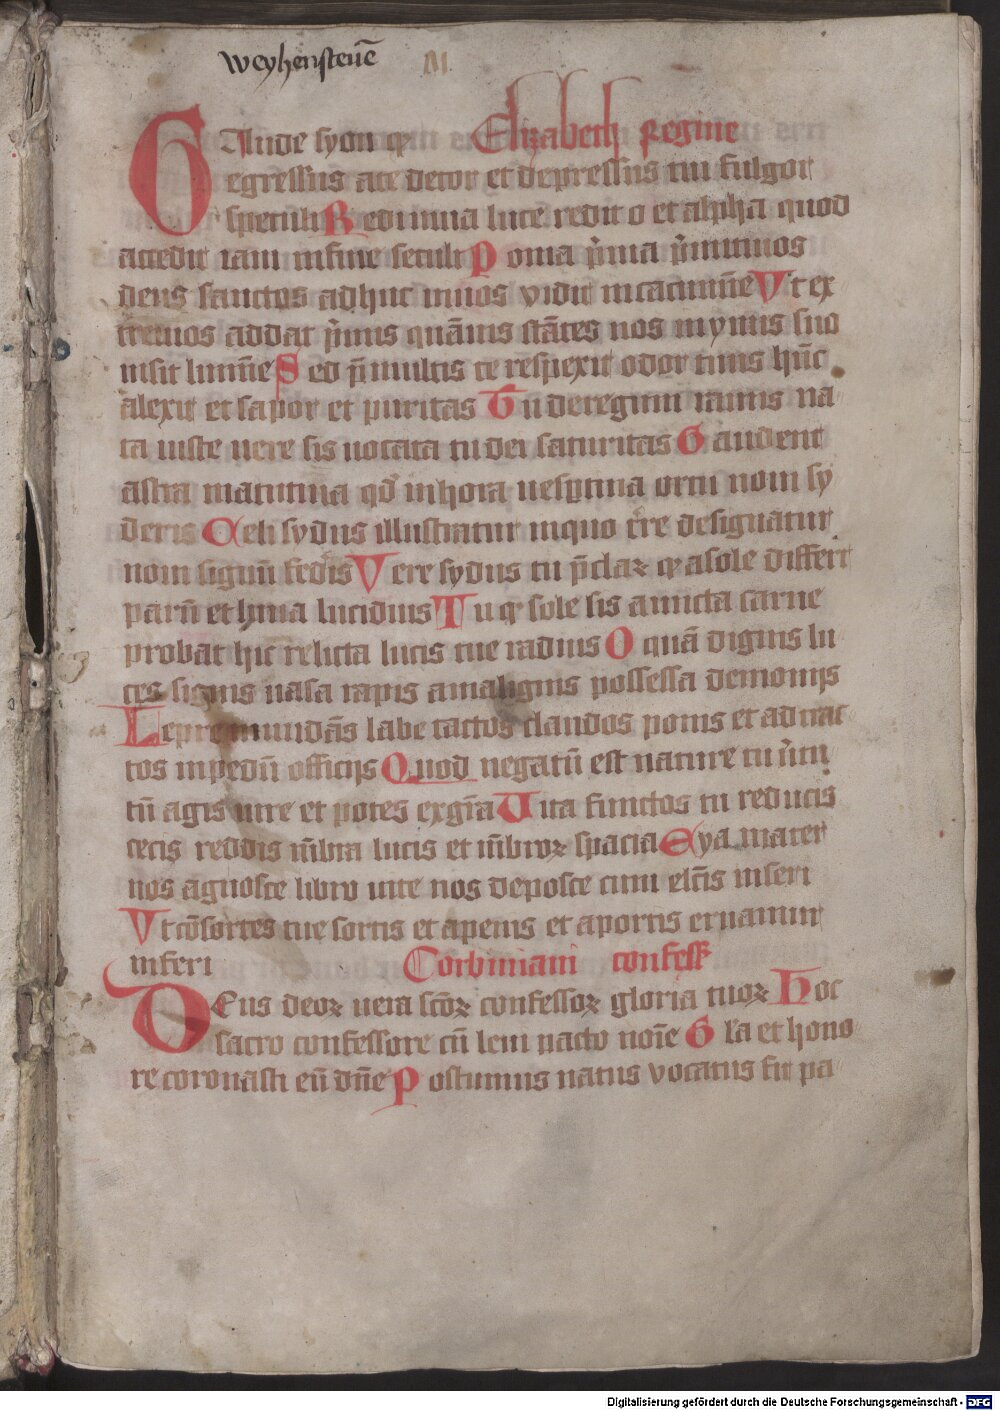 weyhensteuē M
GAude syon qͥ Elizabeth regine
egressus a te decor et depressus tui fulgor
speculi Rediuiua luce redit o et alpha quod
accedit iam in fine seculi Poma p̄ma p̄mitiuos
deus sanctos adhuc viuos vidit in cacumīe Vt ex
tremos addat p̄mis quāuis stātes nos in ymis suo
uisit lumīe Sed p̄ multis te respexit odor tuus hūc
alexit et sapor et puritas Tu de regum ramis na
ta iuste uere sis uocata tu dei saturitas Gaudent
astra matutina qd̄ in hora uespertina ortu noui sy
deris Celi sydus illustratur in quo t̄re designatur
noui signū federis Vere sydus tu p̄claꝝ qͥ a sole differt
parū et luna lucidius Tu qͥ sole sis amicta carne
probat hic relicta lucis tue radius O quā dignis lu
ces signis uasa rapis a malignis possessa demonijs
Lepre mundās labe tactos claudos ponis et attrac
tos in pedū officijs Quod negatū est nature tu uirtu
tū agis iure et potes ex gr̄a Vita functos tu reducis
cecis reddis mēbra lucis et mēbroꝝ spacia Eya mater
nos agnosce libro uite nos deposce cum elc̄is inseri
Vt cōsortes tue sortis et a penis et a portis eruamur
inferi Corbiniani confess
DEus deoꝝ uera sc̄oꝝ confessoꝝ gloria tuoꝝ Hoc
sacro confessore cū leui nacto noīe Gl'a et hono
re coronasti eū dn̄e Postumus natus vocatus fit pa
Digitalisierung gefördert durch die Deutsche Forschungsgemeinschaft - DFG